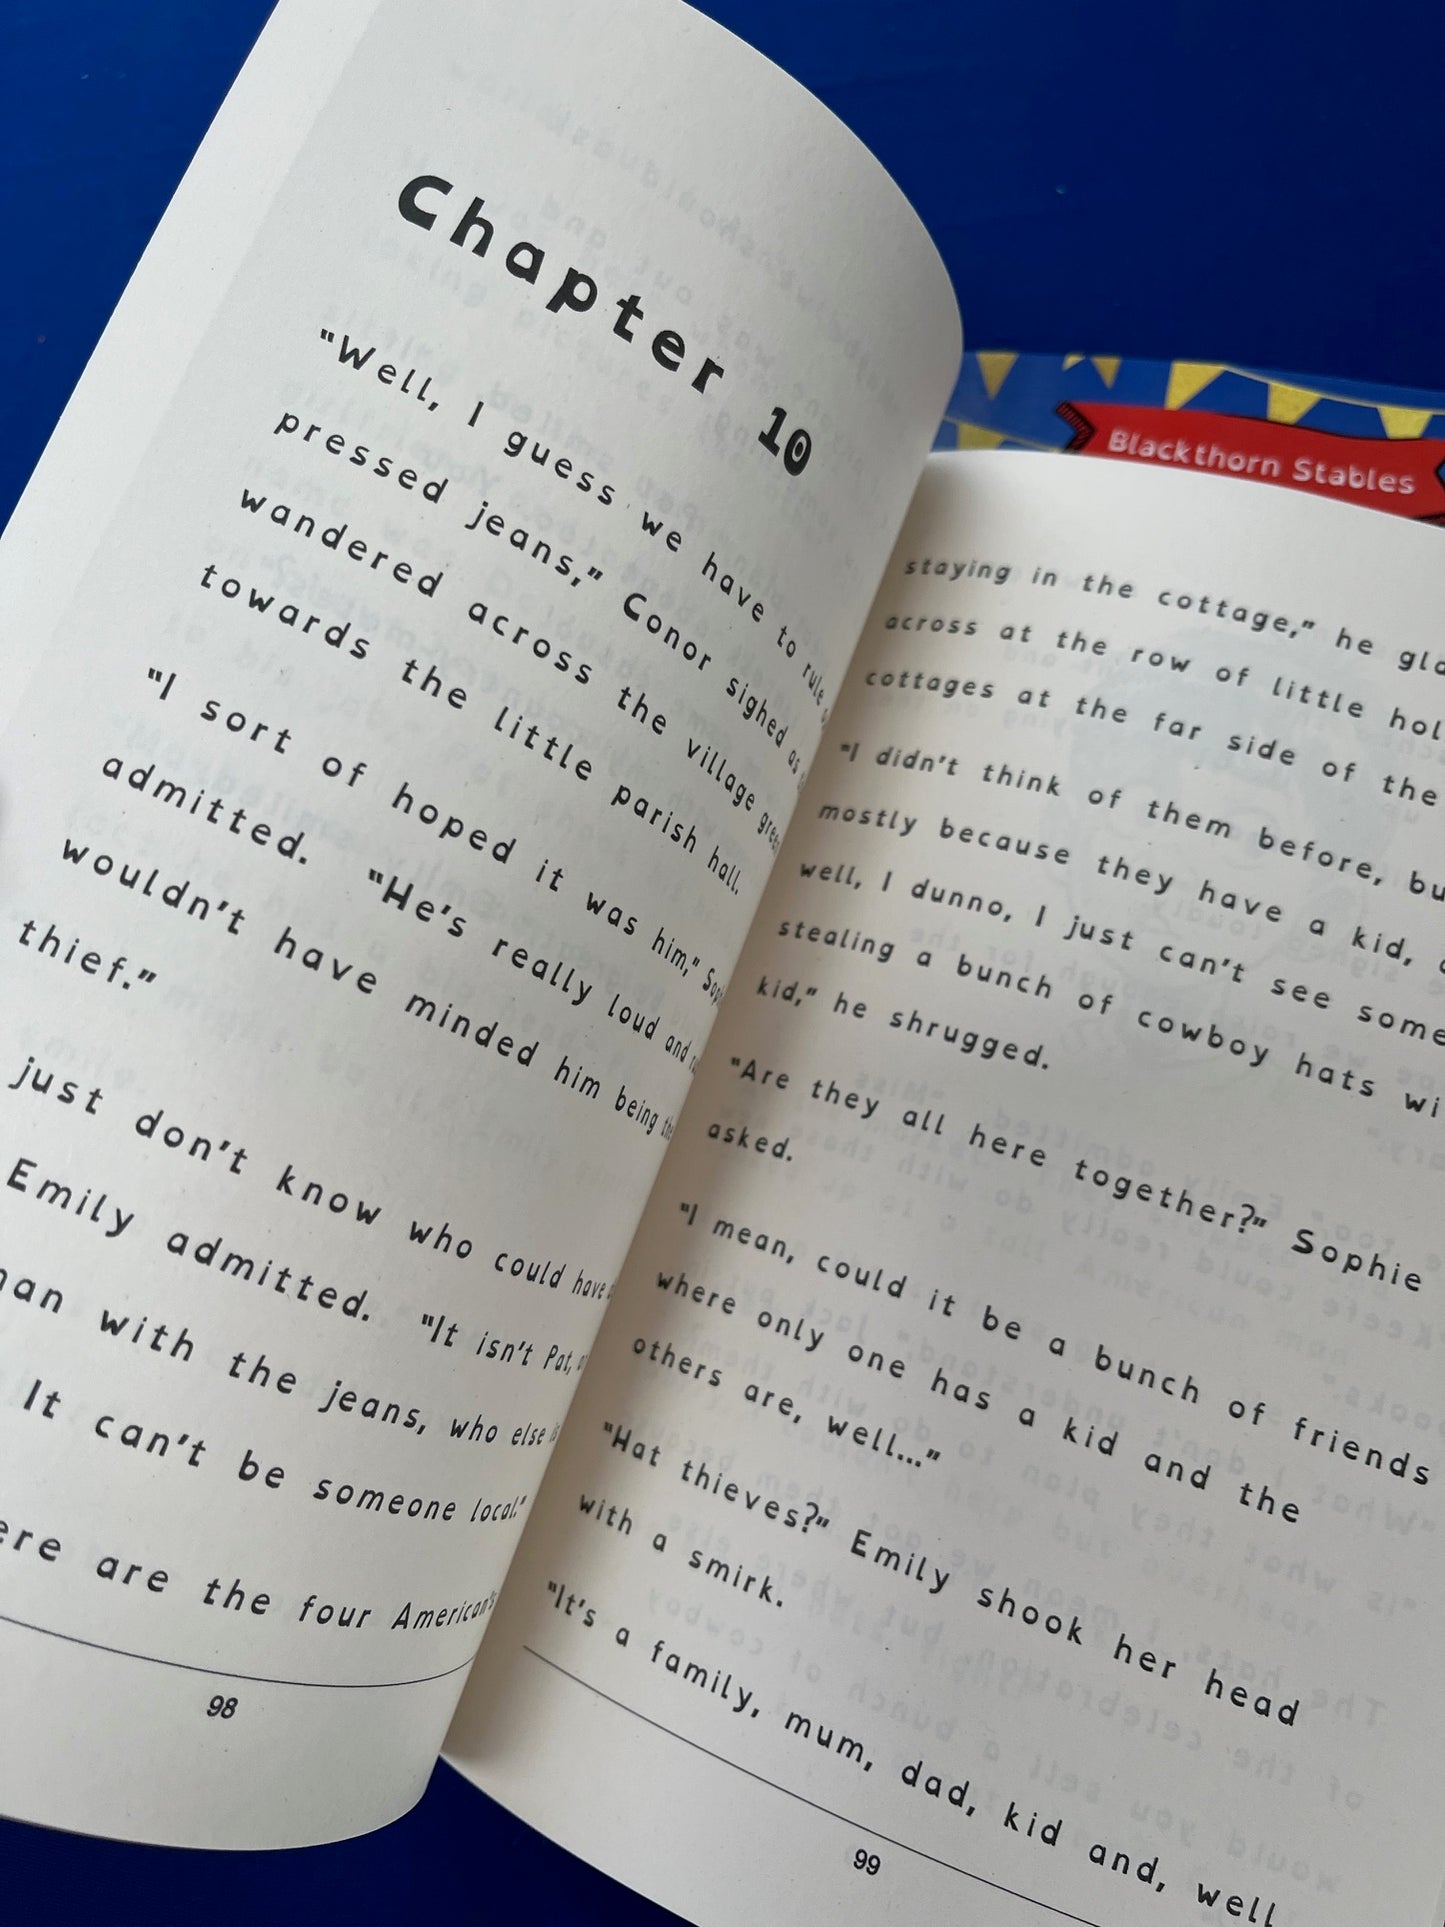 Chapter 10
"Well, I guess we have to rule
pressed jeans," Conor sighed as
wandered across the village green
towards the little parish hall.
"I sort of hoped it was him," Soph
admitted. "He's really loud and
wouldn't have minded him being the
thief."
just don't know who could have
Emily admitted. "It isn't Pat,
man with the jeans, who else is
It can't be someone local."
ere are the four American's
98
Blackthorn Stables
staying in the cottage," he gla
across at the row of little hol
cottages at the far side of the
"I didn't think of them before, bu
mostly because they have a kid,
well, I dunno, I just can't see some
stealing a bunch of cowboy hats wi
kid," he shrugged.
"Are they all here together?" Sophie
asked.
"I mean, could it be a bunch of friends
where only one has a kid and the
others are, well..."
"Hat thieves?" Emily shook her head
with a smirk.
"It's a family, mum, dad, kid and, well
99